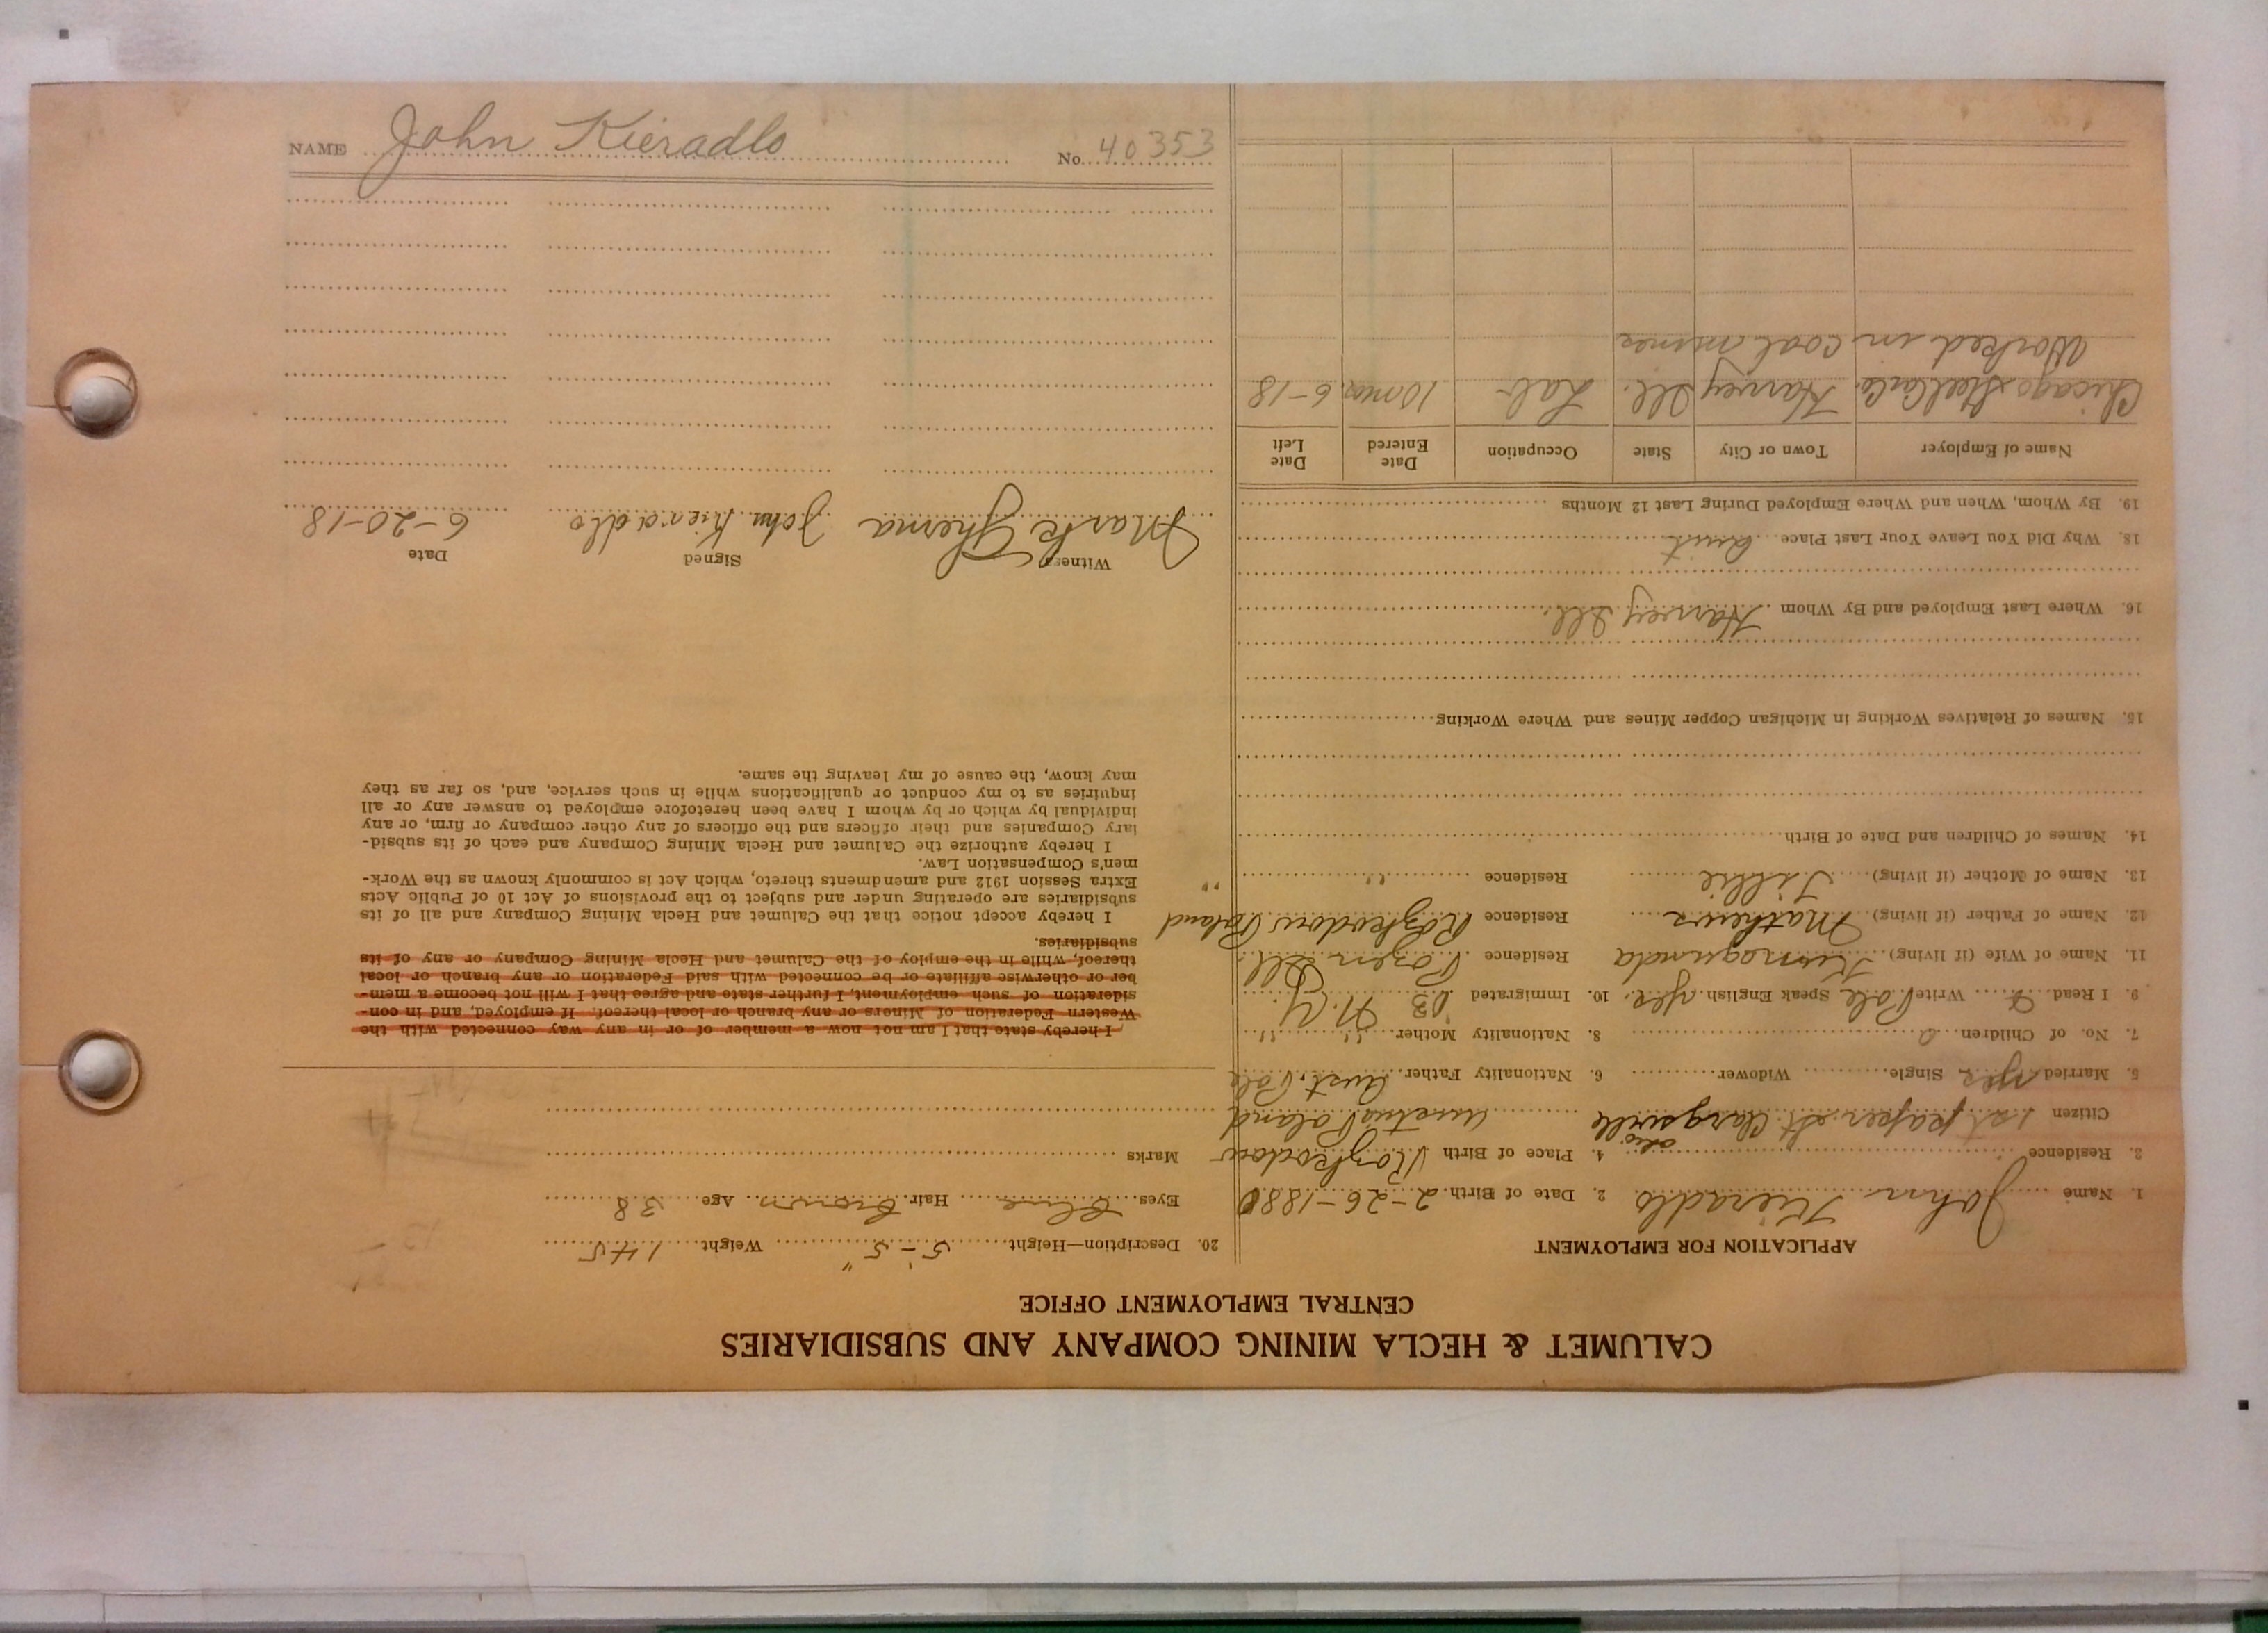 CALUMET & HECLA MINING COMPANY AND SUBSIDIARIES
CENTRAL EMPLOYMENT OFFICE
APPLICATION FOR EMPLOYMENT
1. Name John Kieradlo 2. Date of Birth 2-26-1880
3. Residence 4. Place of Birth
Citizen 1st paper St. Ohio Poland
5. Married yes Single Widower 6. Nationality Father Aust. Pole
7. No. of Children 2 8. Nationality Mother " "
9. I Read Write Pole Speak English yes 10. Immigrated 03 N.Y.
11. Name of Wife (if living) Residence Posen Ill
12. Name of Father (if living) Mathew Residence Poland
13. Name of Mother (if living) Tillie Residence " "
14. Names of Children and Date of Birth
15. Names of Relatives Working in Michigan Copper Mines and Where Working
16. Where Last Employed and By Whom Harvey Ill.
18. Why Did You Leave Your Last Place quit
19. By Whom, When and Where Employed During Last 12 Months
Name of Employer Town or City State Occupation Date Entered Date Left
Chicago Steel Car Co. Harvey Ill. Lab 10 mos 6-18
Worked in coal mines
20. Description—Height 5'-5" Weight 145
Eyes blue Hair brown Age 38
Marks
I hereby state that I am not now a member of or in any way connected with the
Western Federation of Miners or any branch or local thereof. If employed, and in con-
sideration of such employment, I further state and agree that I will not become a mem-
ber or otherwise affiliate or be connected with said Federation or any branch or local
thereof, while in the employ of the Calumet and Hecla Mining Company or any of its
subsidiaries.
I hereby accept notice that the Calumet and Hecla Mining Company and all of its
subsidiaries are operating under and subject to the provisions of Act 10 of Public Acts
Extra Session 1912 and amendments thereto, which Act is commonly known as the Work-
men's Compensation Law.
I hereby authorize the Calumet and Hecla Mining Company and each of its subsid-
iary Companies and their officers and the officers of any other company or firm, or any
individual by which or by whom I have been heretofore employed to answer any or all
inquiries as to my conduct or qualifications while in such service, and, so far as they
may know, the cause of my leaving the same.
Witness Signed Date
Mark John Kieradlo 6-20-18
NAME John Kieradlo No. 40353